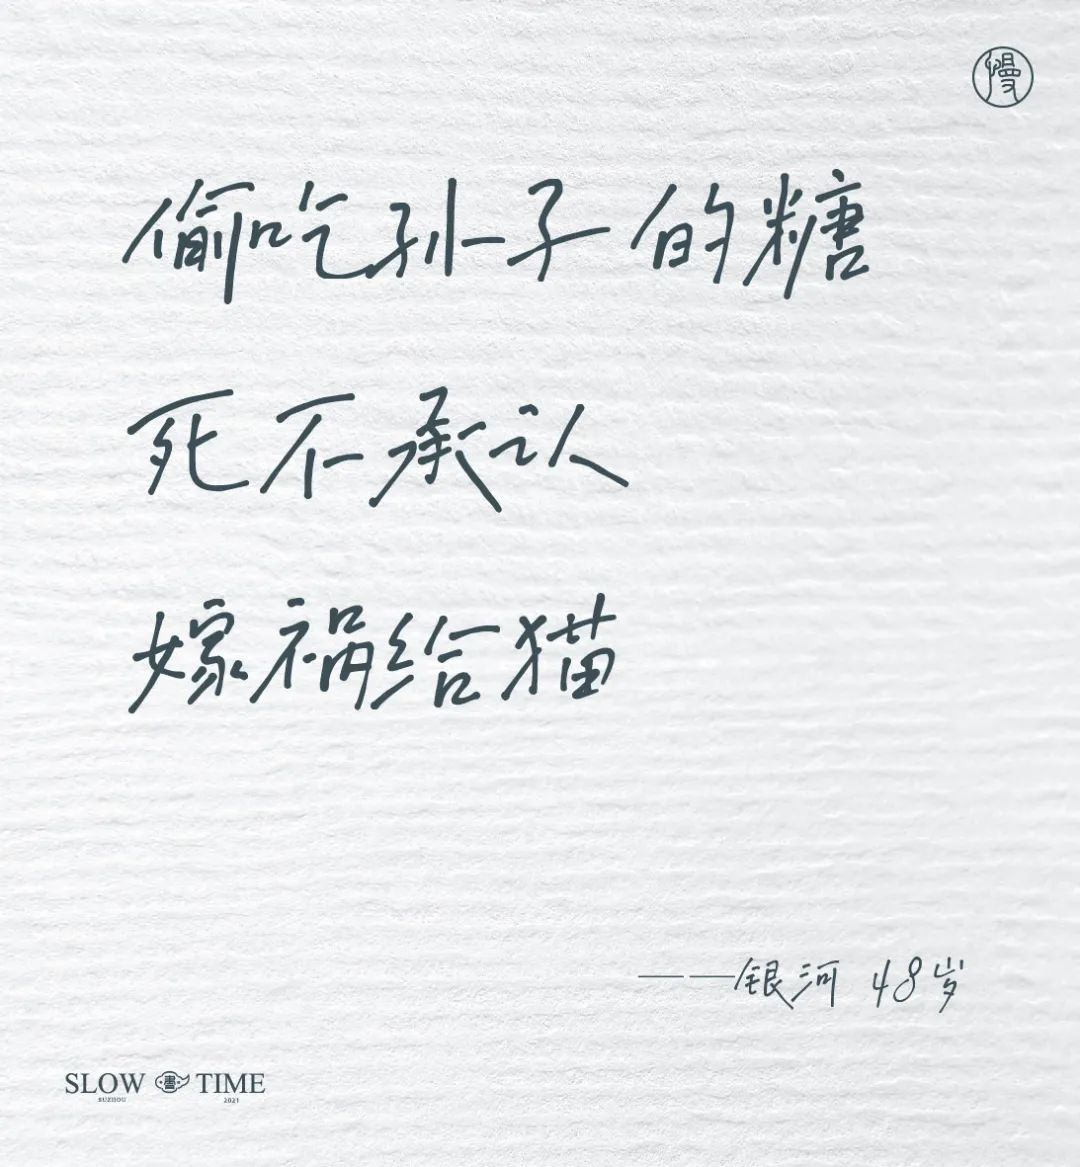 慢
偷吃孙子的糖
死不承认
嫁祸给猫
——银河 48岁
SLOW 書 TIME
SUZHOU 2021